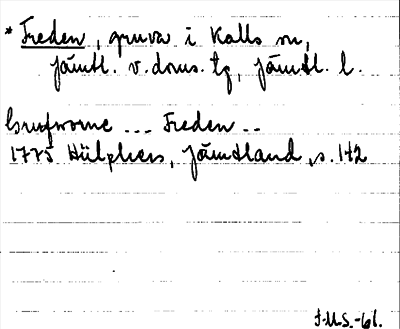 * Freden, gruva i Kalls sn,
Jämtl. v. doms. tg, Jämtl. l.
Grufworne ... Freden ..
1775 Hülphers, Jämtland, s. 142
J.M.S.-61.